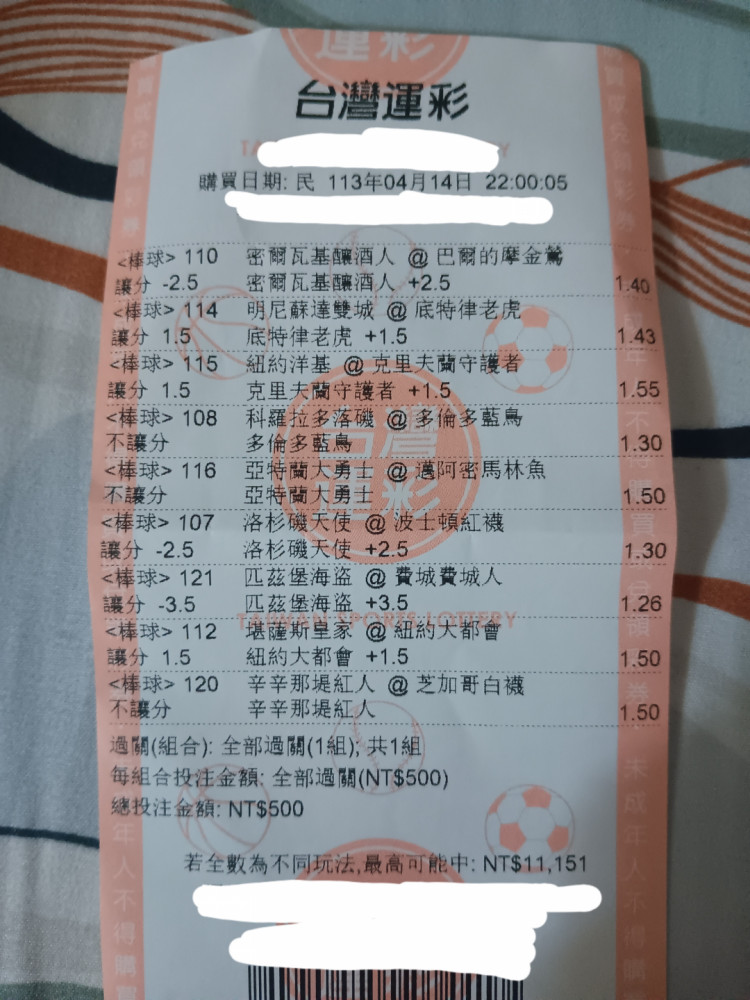 運彩
台灣運彩
購買日期: 民 113年04月14日 22:00:05
<棒球> 110 密爾瓦基釀酒人 @ 巴爾的摩金鶯
讓分 -2.5 密爾瓦基釀酒人 +2.5 1.40
<棒球> 114 明尼蘇達雙城 @ 底特律老虎
讓分 1.5 底特律老虎 +1.5 1.43
<棒球> 115 紐約洋基 @ 克里夫蘭守護者
讓分 1.5 克里夫蘭守護者 +1.5 1.55
<棒球> 108 科羅拉多落磯 @ 多倫多藍鳥
不讓分 多倫多藍鳥 1.30
<棒球> 116 亞特蘭大勇士 @ 邁阿密馬林魚
不讓分 亞特蘭大勇士 1.50
<棒球> 107 洛杉磯天使 @ 波士頓紅襪
讓分 -2.5 洛杉磯天使 +2.5 1.30
<棒球> 121 匹茲堡海盜 @ 費城費城人
讓分 -3.5 匹茲堡海盜 +3.5 1.26
TAIWAN SPORTS LOTTERY
<棒球> 112 堪薩斯皇家 @ 紐約大都會
讓分 1.5 紐約大都會 +1.5 1.50
<棒球> 120 辛辛那堤紅人 @ 芝加哥白襪
不讓分 辛辛那堤紅人 1.50
過關(組合): 全部過關(1組); 共1組
每組合投注金額: 全部過關(NT$500)
總投注金額: NT$500
若全數為不同玩法,最高可能中: NT$11,151